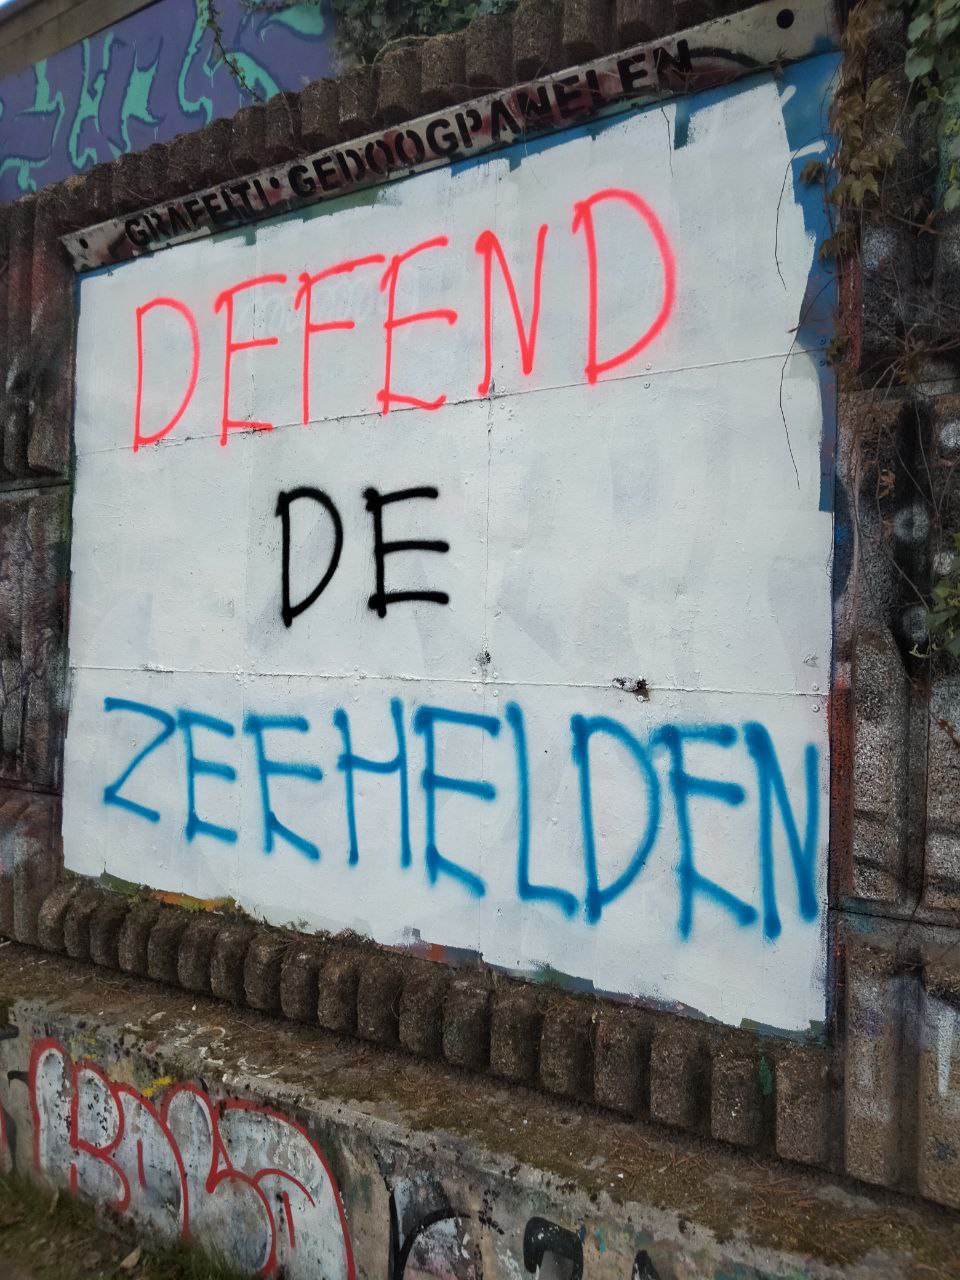 GRAFFITI GEDOOGPANELEN
DEFEND
DE
ZEEHELDEN